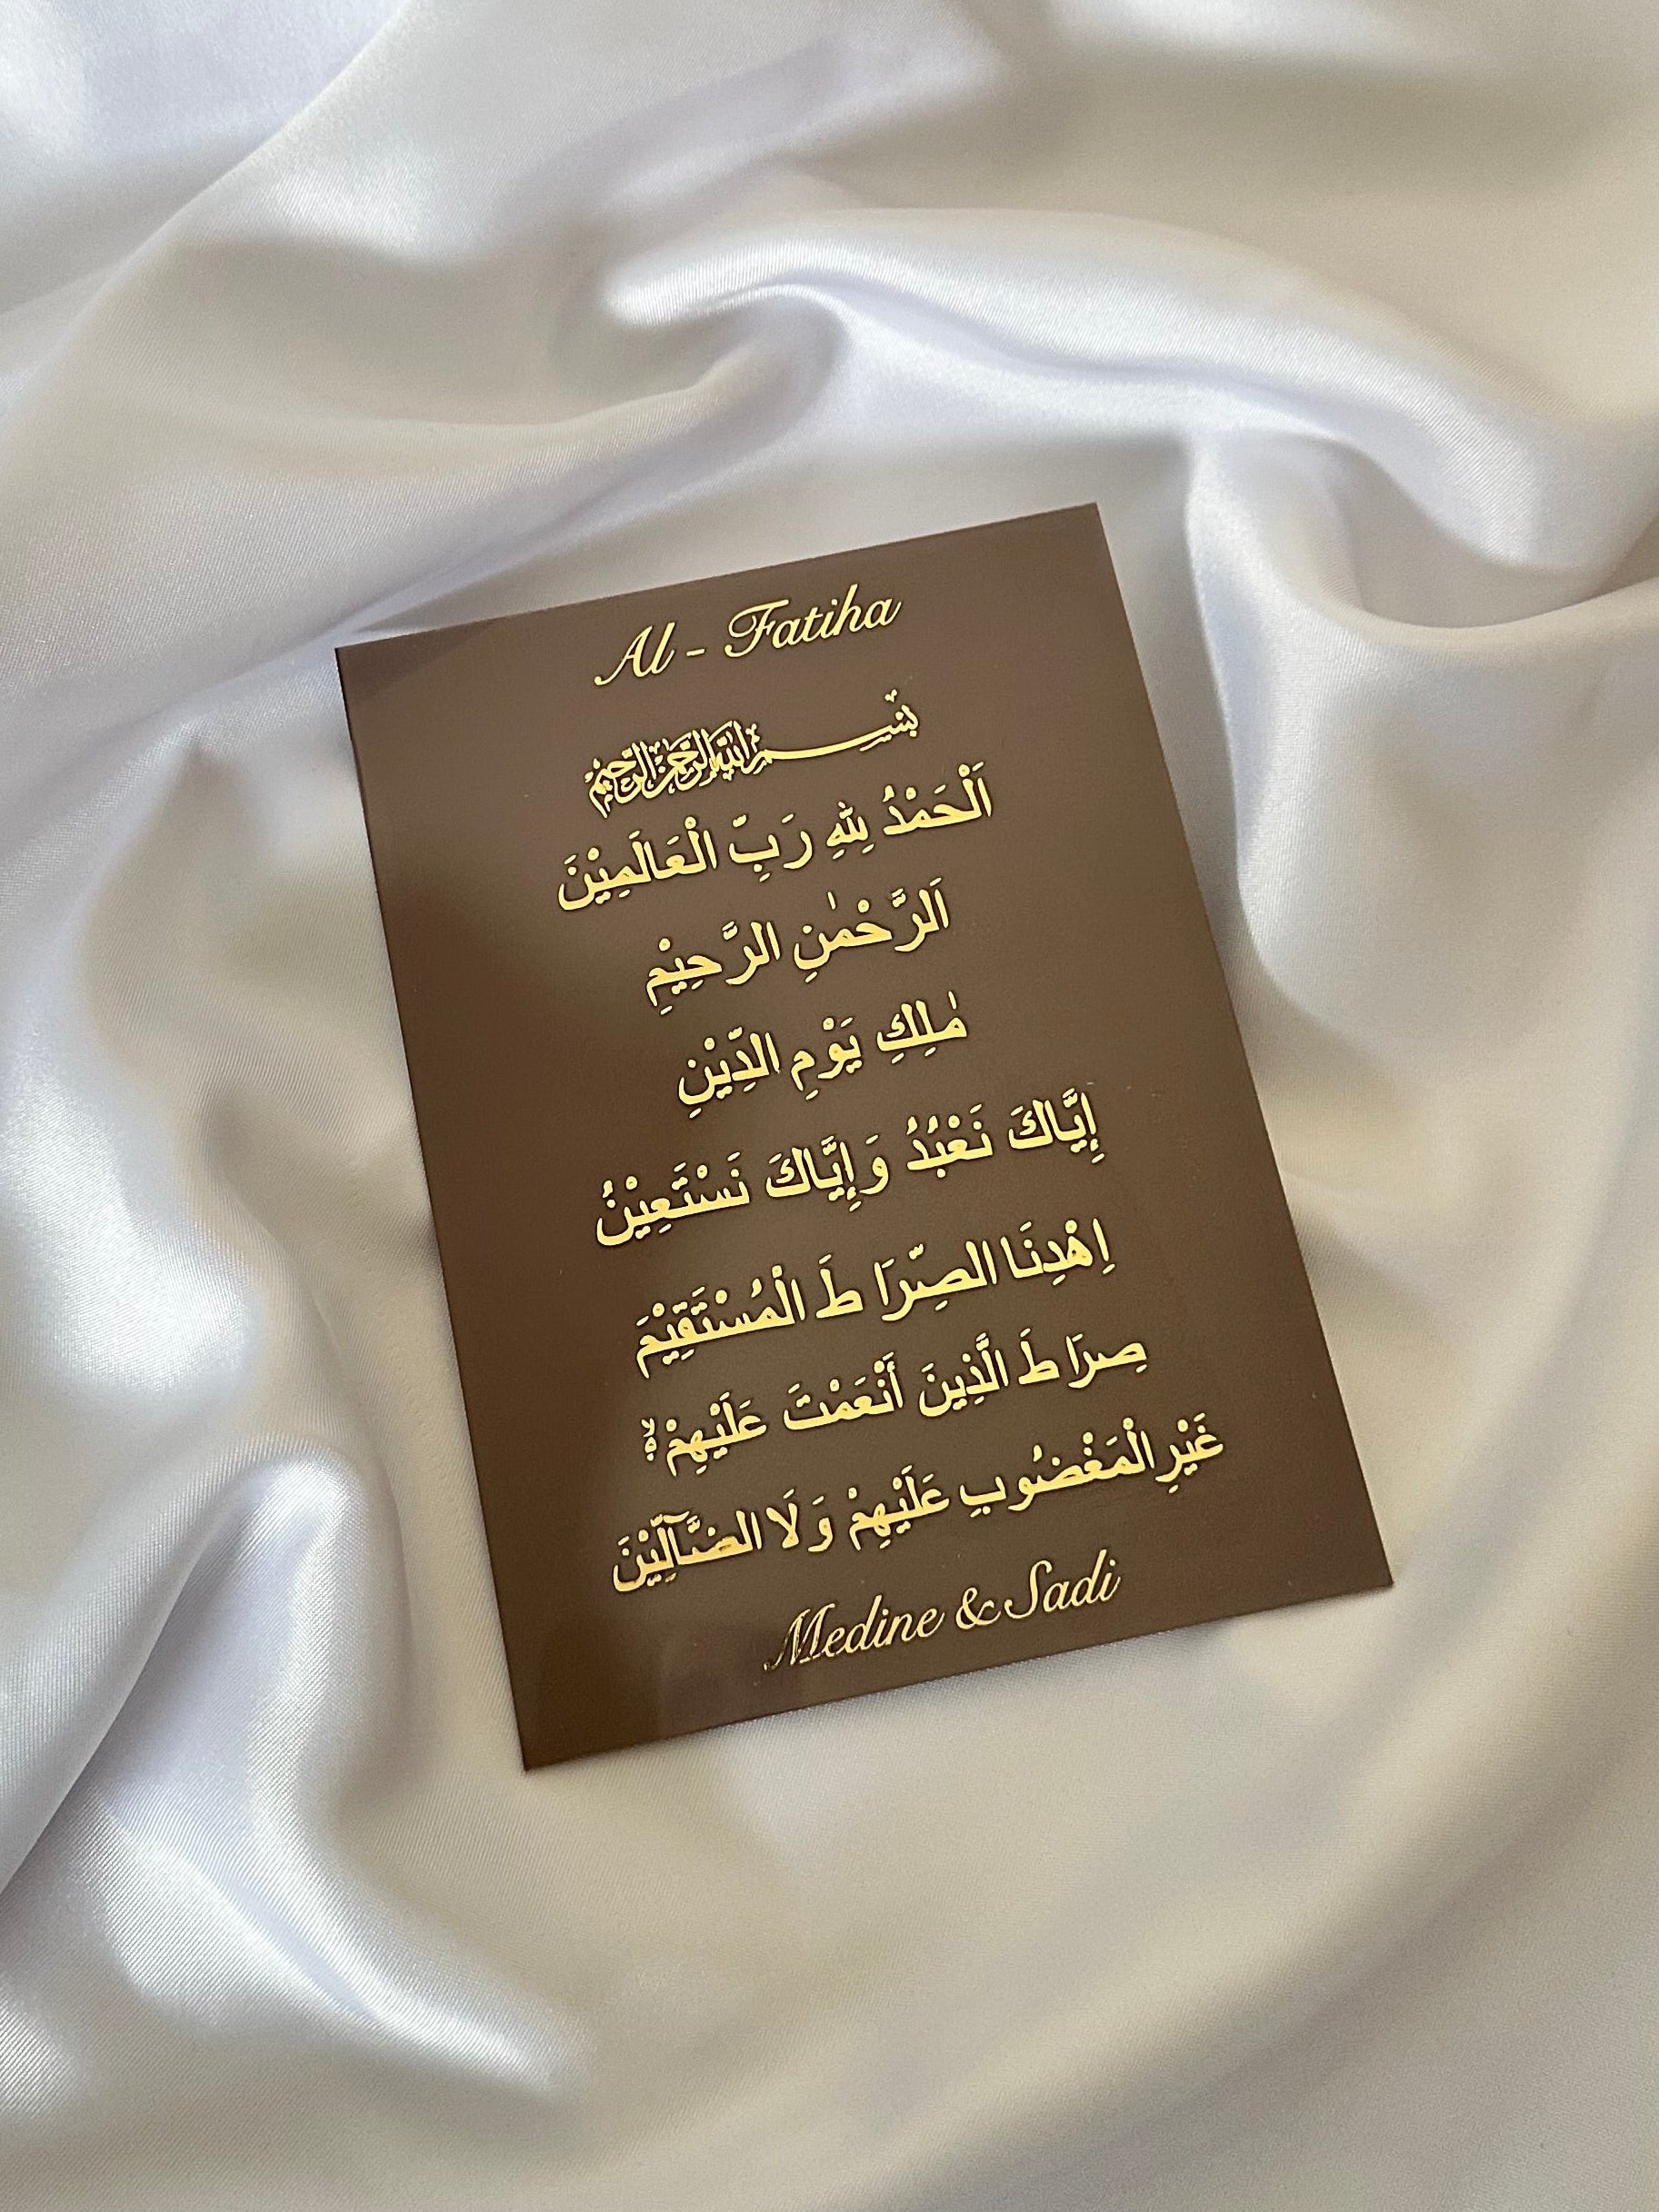 Al - Fatiha
بسم الله الرحمن الرحيم
اَلْحَمْدُ لِلّٰهِ رَبِّ الْعَالَمِيْنَ
اَلرَّحْمٰنِ الرَّحِيْمِ
مٰلِكِ يَوْمِ الدِّيْنِ
إِيَّاكَ نَعْبُدُ وَإِيَّاكَ نَسْتَعِيْنُ
اِهْدِنَا الصِّرَا طَ الْمُسْتَقِيْمَ
صِرَا طَ الَّذِينَ أَنْعَمْتَ عَلَيْهِمْ ۙ۬ۙ
غَيْرِ الْمَغْضُوبِ عَلَيْهِمْ وَلَا الضَّآلِّيْنَ
Medine & Sadi